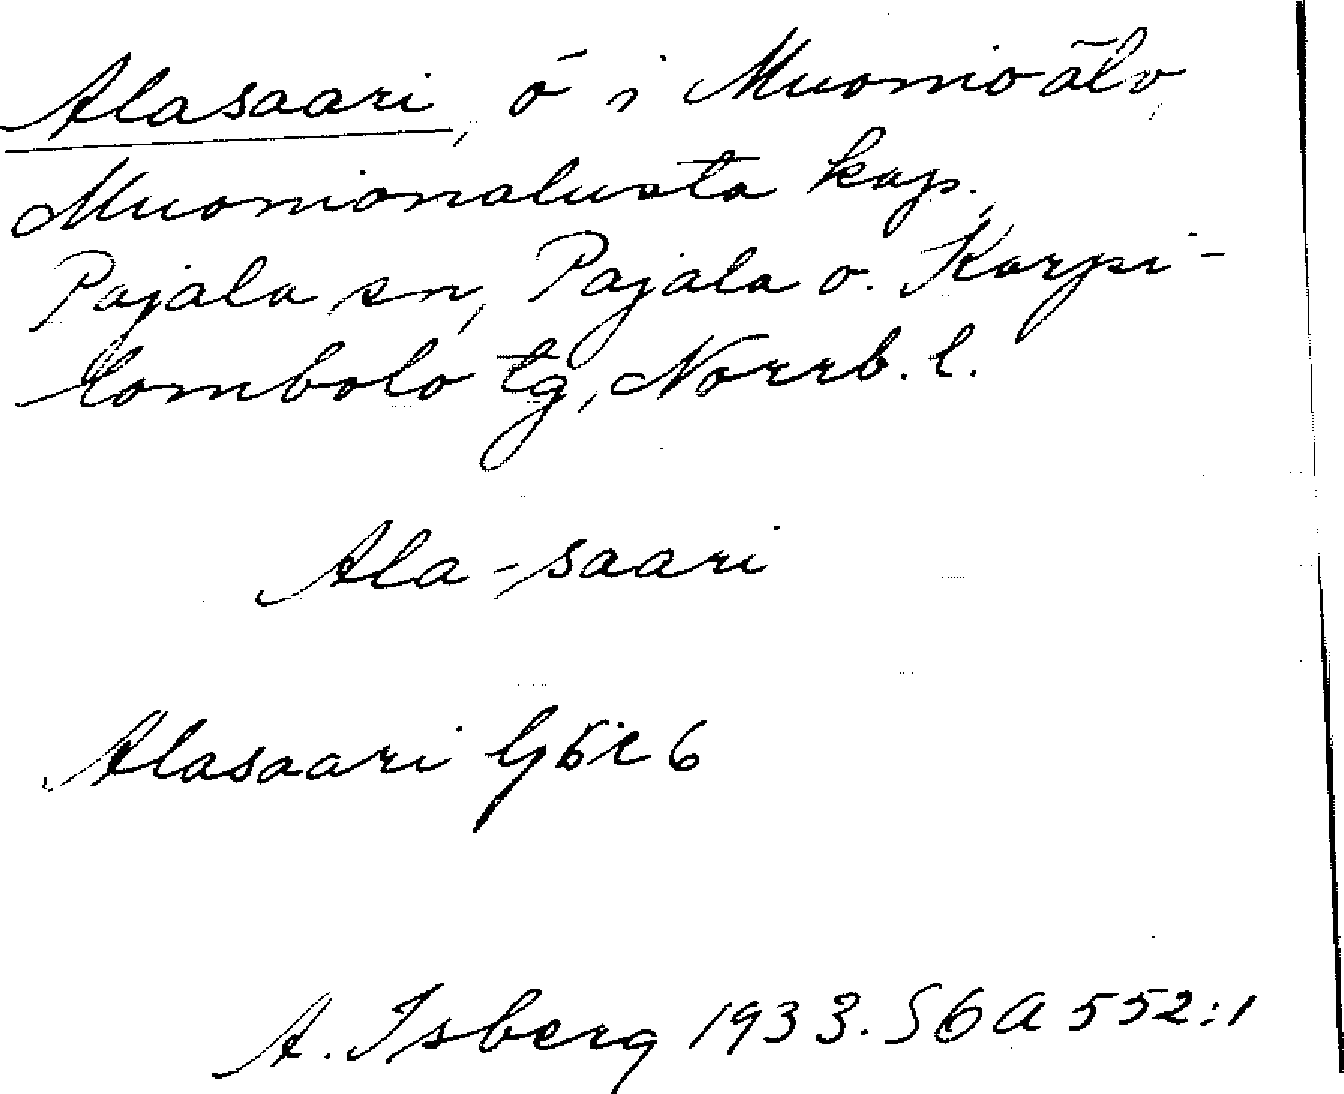 Alasaari, ö i Muonio älv,
Muonionalusta kap.,
Pajala sn, Pajala o. Korpi-
lombolo tg, Norrb. l.
Ala-saari
Alasaari G5c6
A. Isberg 1933. S6a 552:1